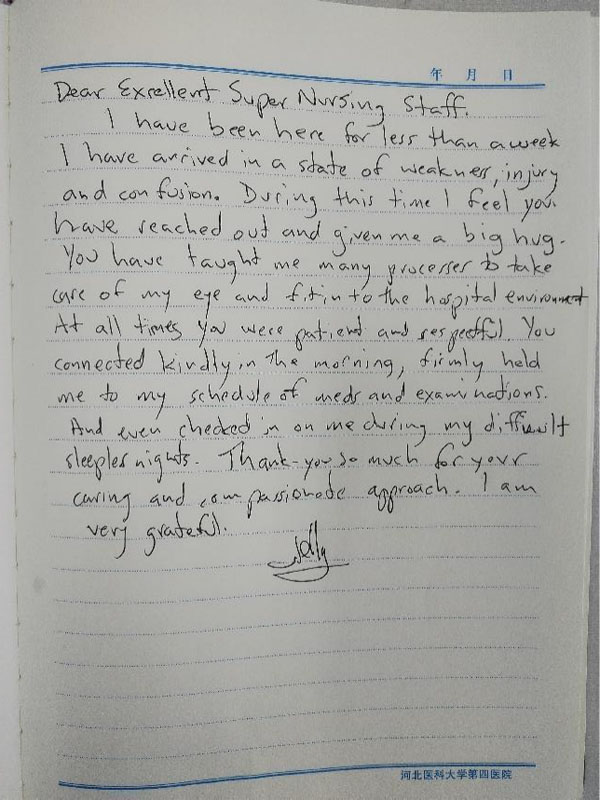 年 月 日
Dear Excellent Super Nursing Staff.
I have been here for less than a week
I have arrived in a state of weakness, injury
and confusion. During this time I feel you
have reached out and given me a big hug.
You have taught me many processes to take
care of my eye and fit into the hospital environment
At all times you were patient and respectful. You
connected kindly in the morning, firmly held
me to my schedule of meds and examinations.
And even checked in on me during my difficult
sleeples nights. Thank-you so much for your
caring and compassionate approach. I am
very grateful.
河北医科大学第四医院